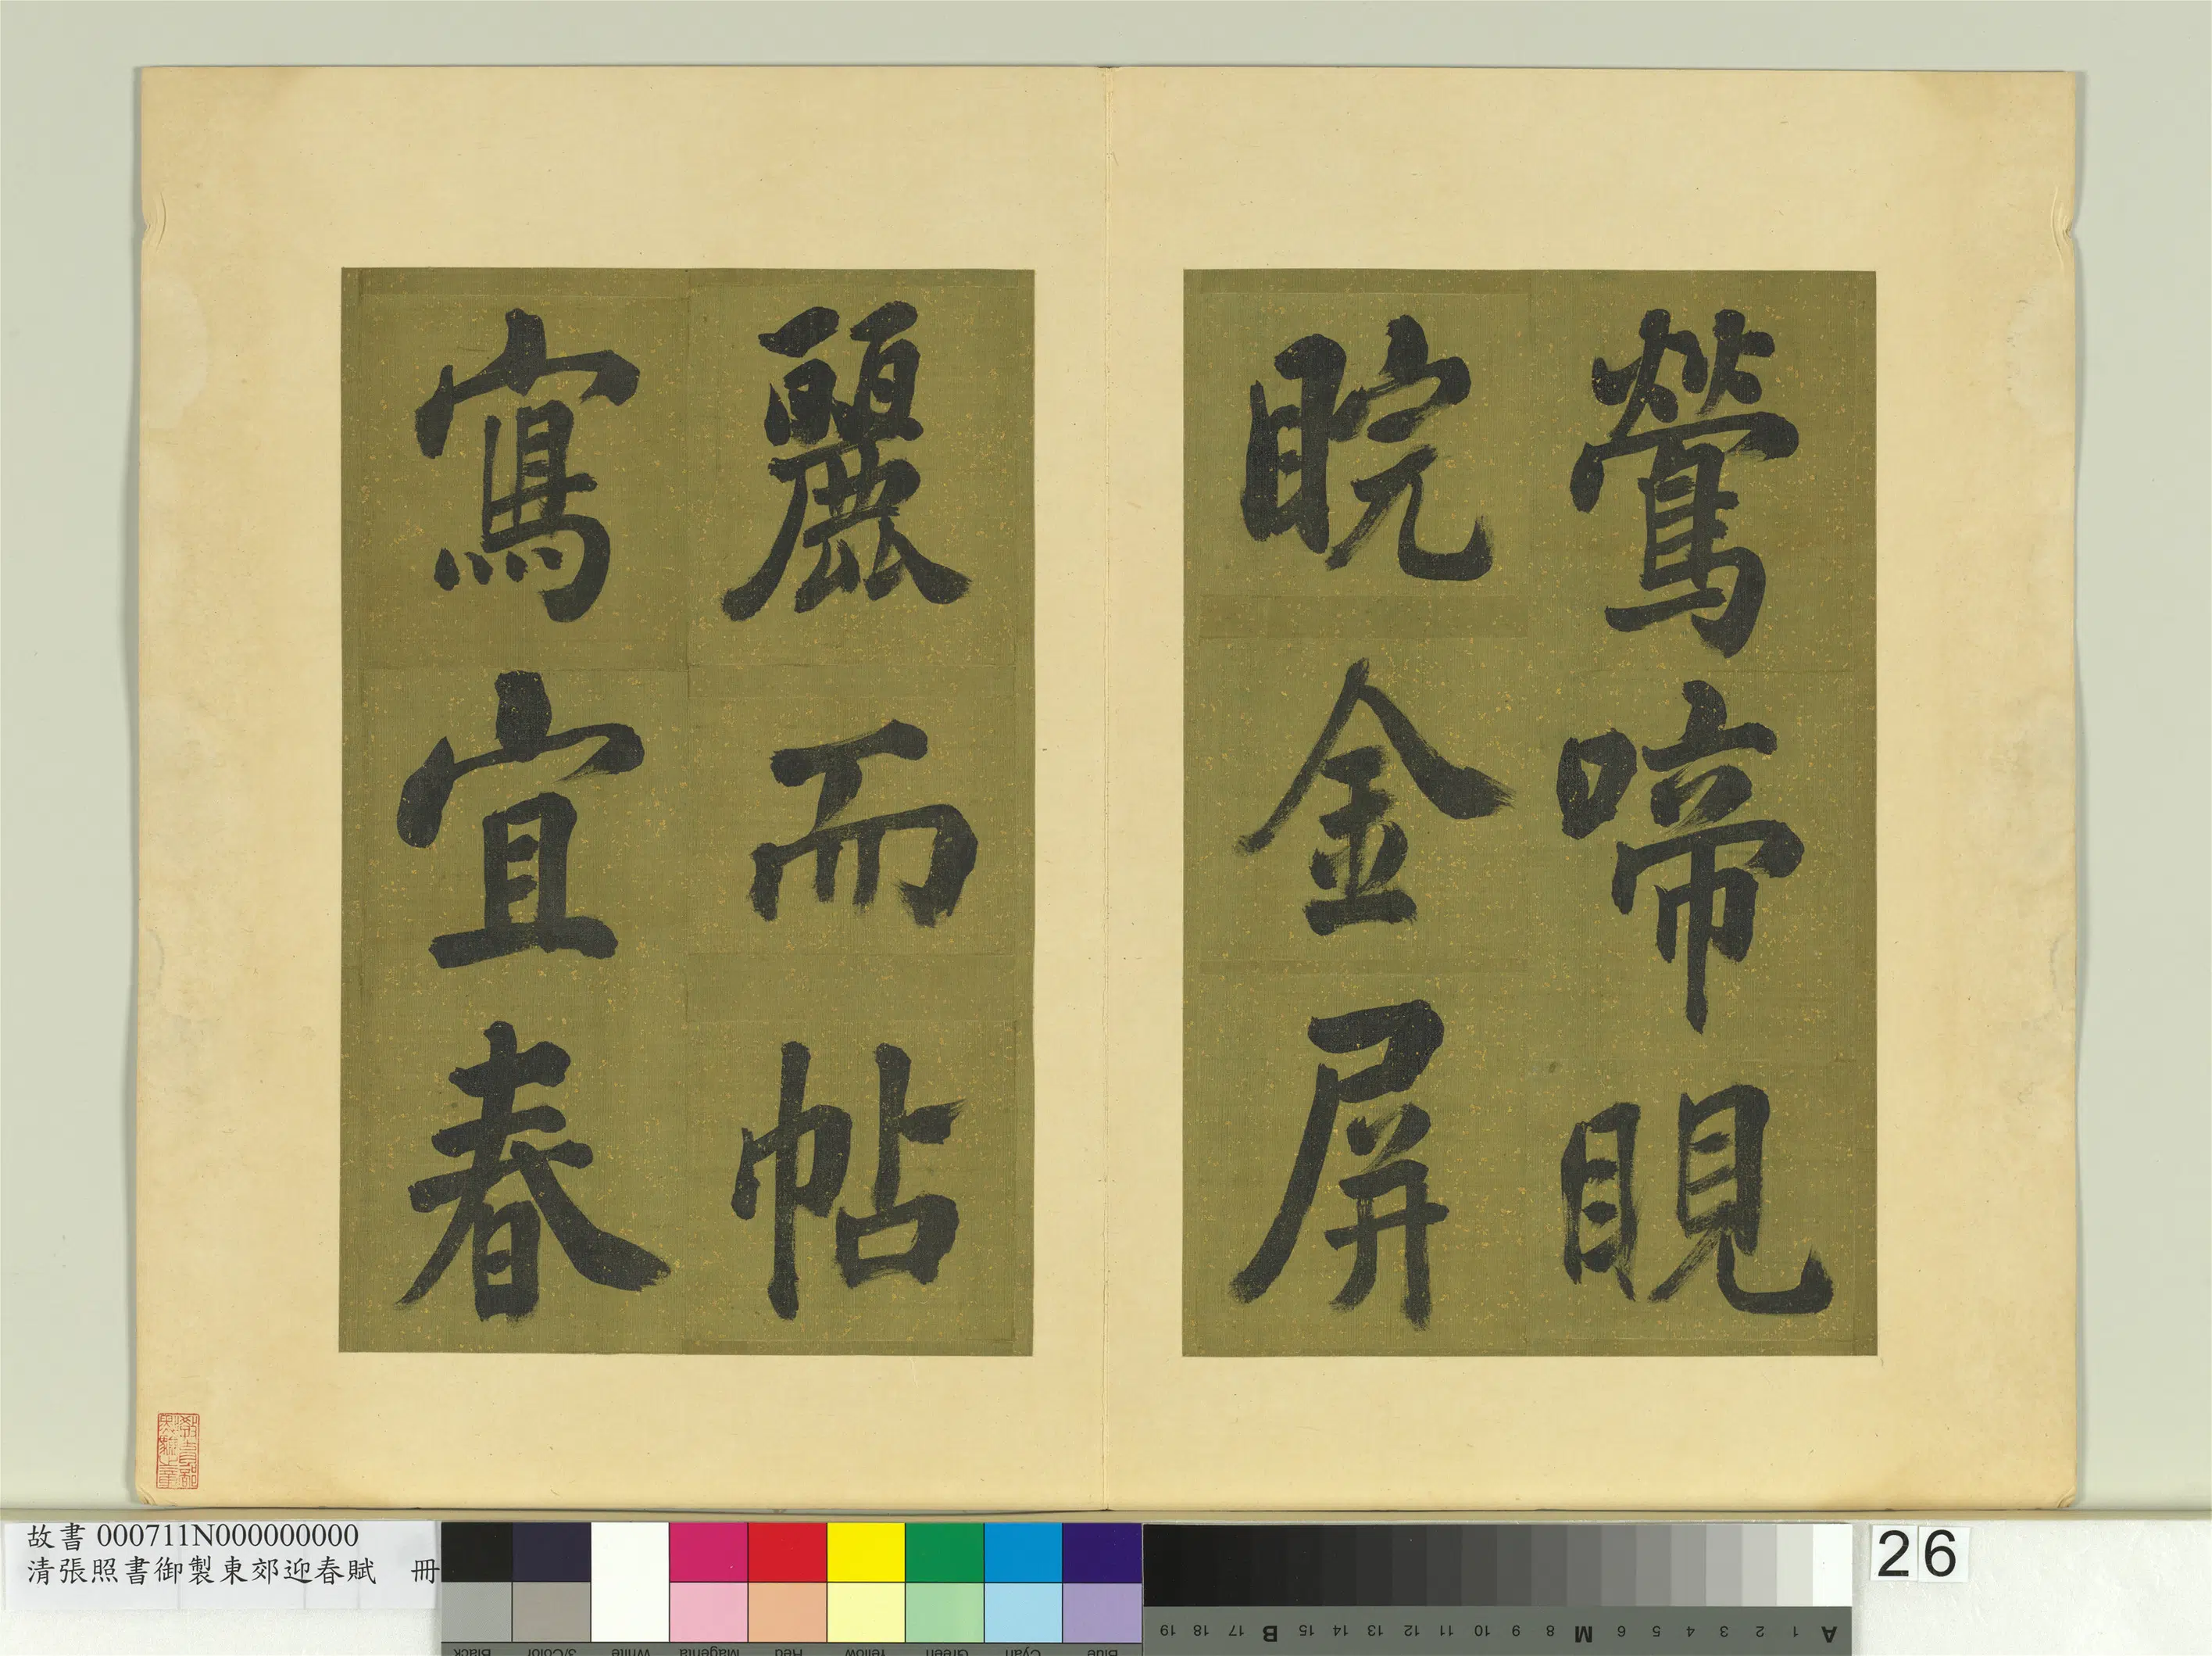 鶯啼睍
睆金屏
麗而帖
寫宜春
故書 000711N000000000
清張照書御製東郊迎春賦 冊
26
Black 3/Color White Magenta Red Yellow Green Cyan Blue
19 18 17 B 15 14 13 12 11 10 9 8 M 6 5 4 3 2 1 A